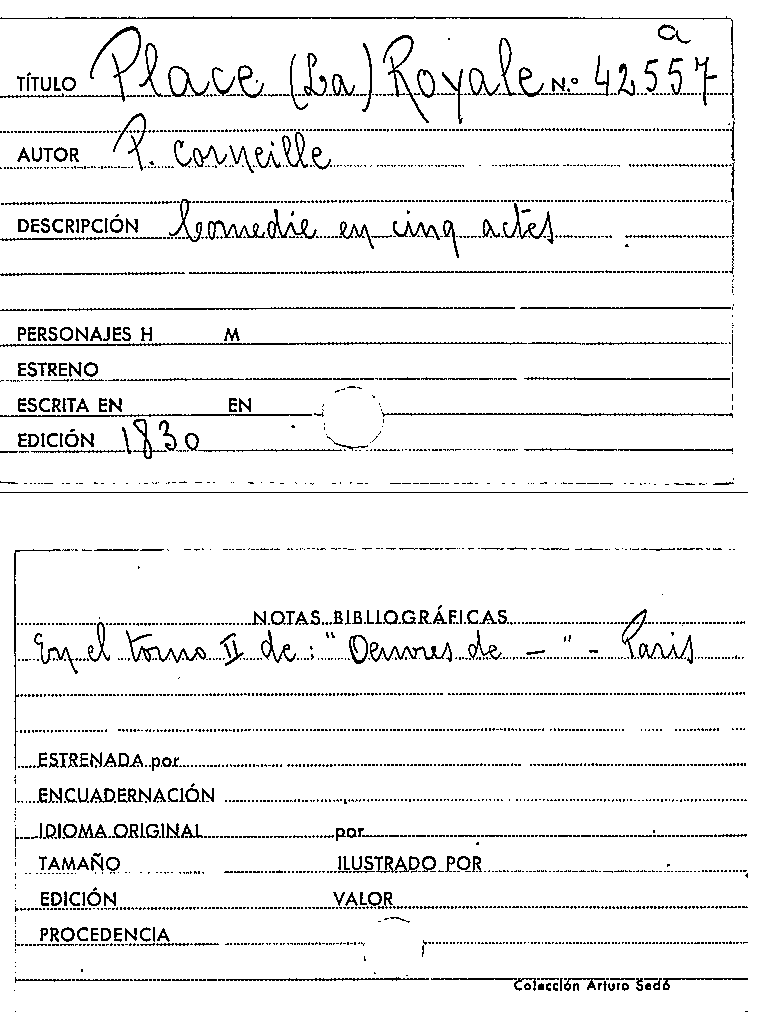 a
TÍTULO Place (La) Royale N.º 42557
AUTOR P. Corneille
DESCRIPCIÓN Comedie en cinq actes
PERSONAJES H M
ESTRENO
ESCRITA EN EN
EDICIÓN 1830
NOTAS BIBLIOGRÁFICAS
En el tomo II de: "Oeuvres de — " - Paris
ESTRENADA por
ENCUADERNACIÓN
IDIOMA ORIGINAL por
TAMAÑO ILUSTRADO POR
EDICIÓN VALOR
PROCEDENCIA
Colección Arturo Sedó